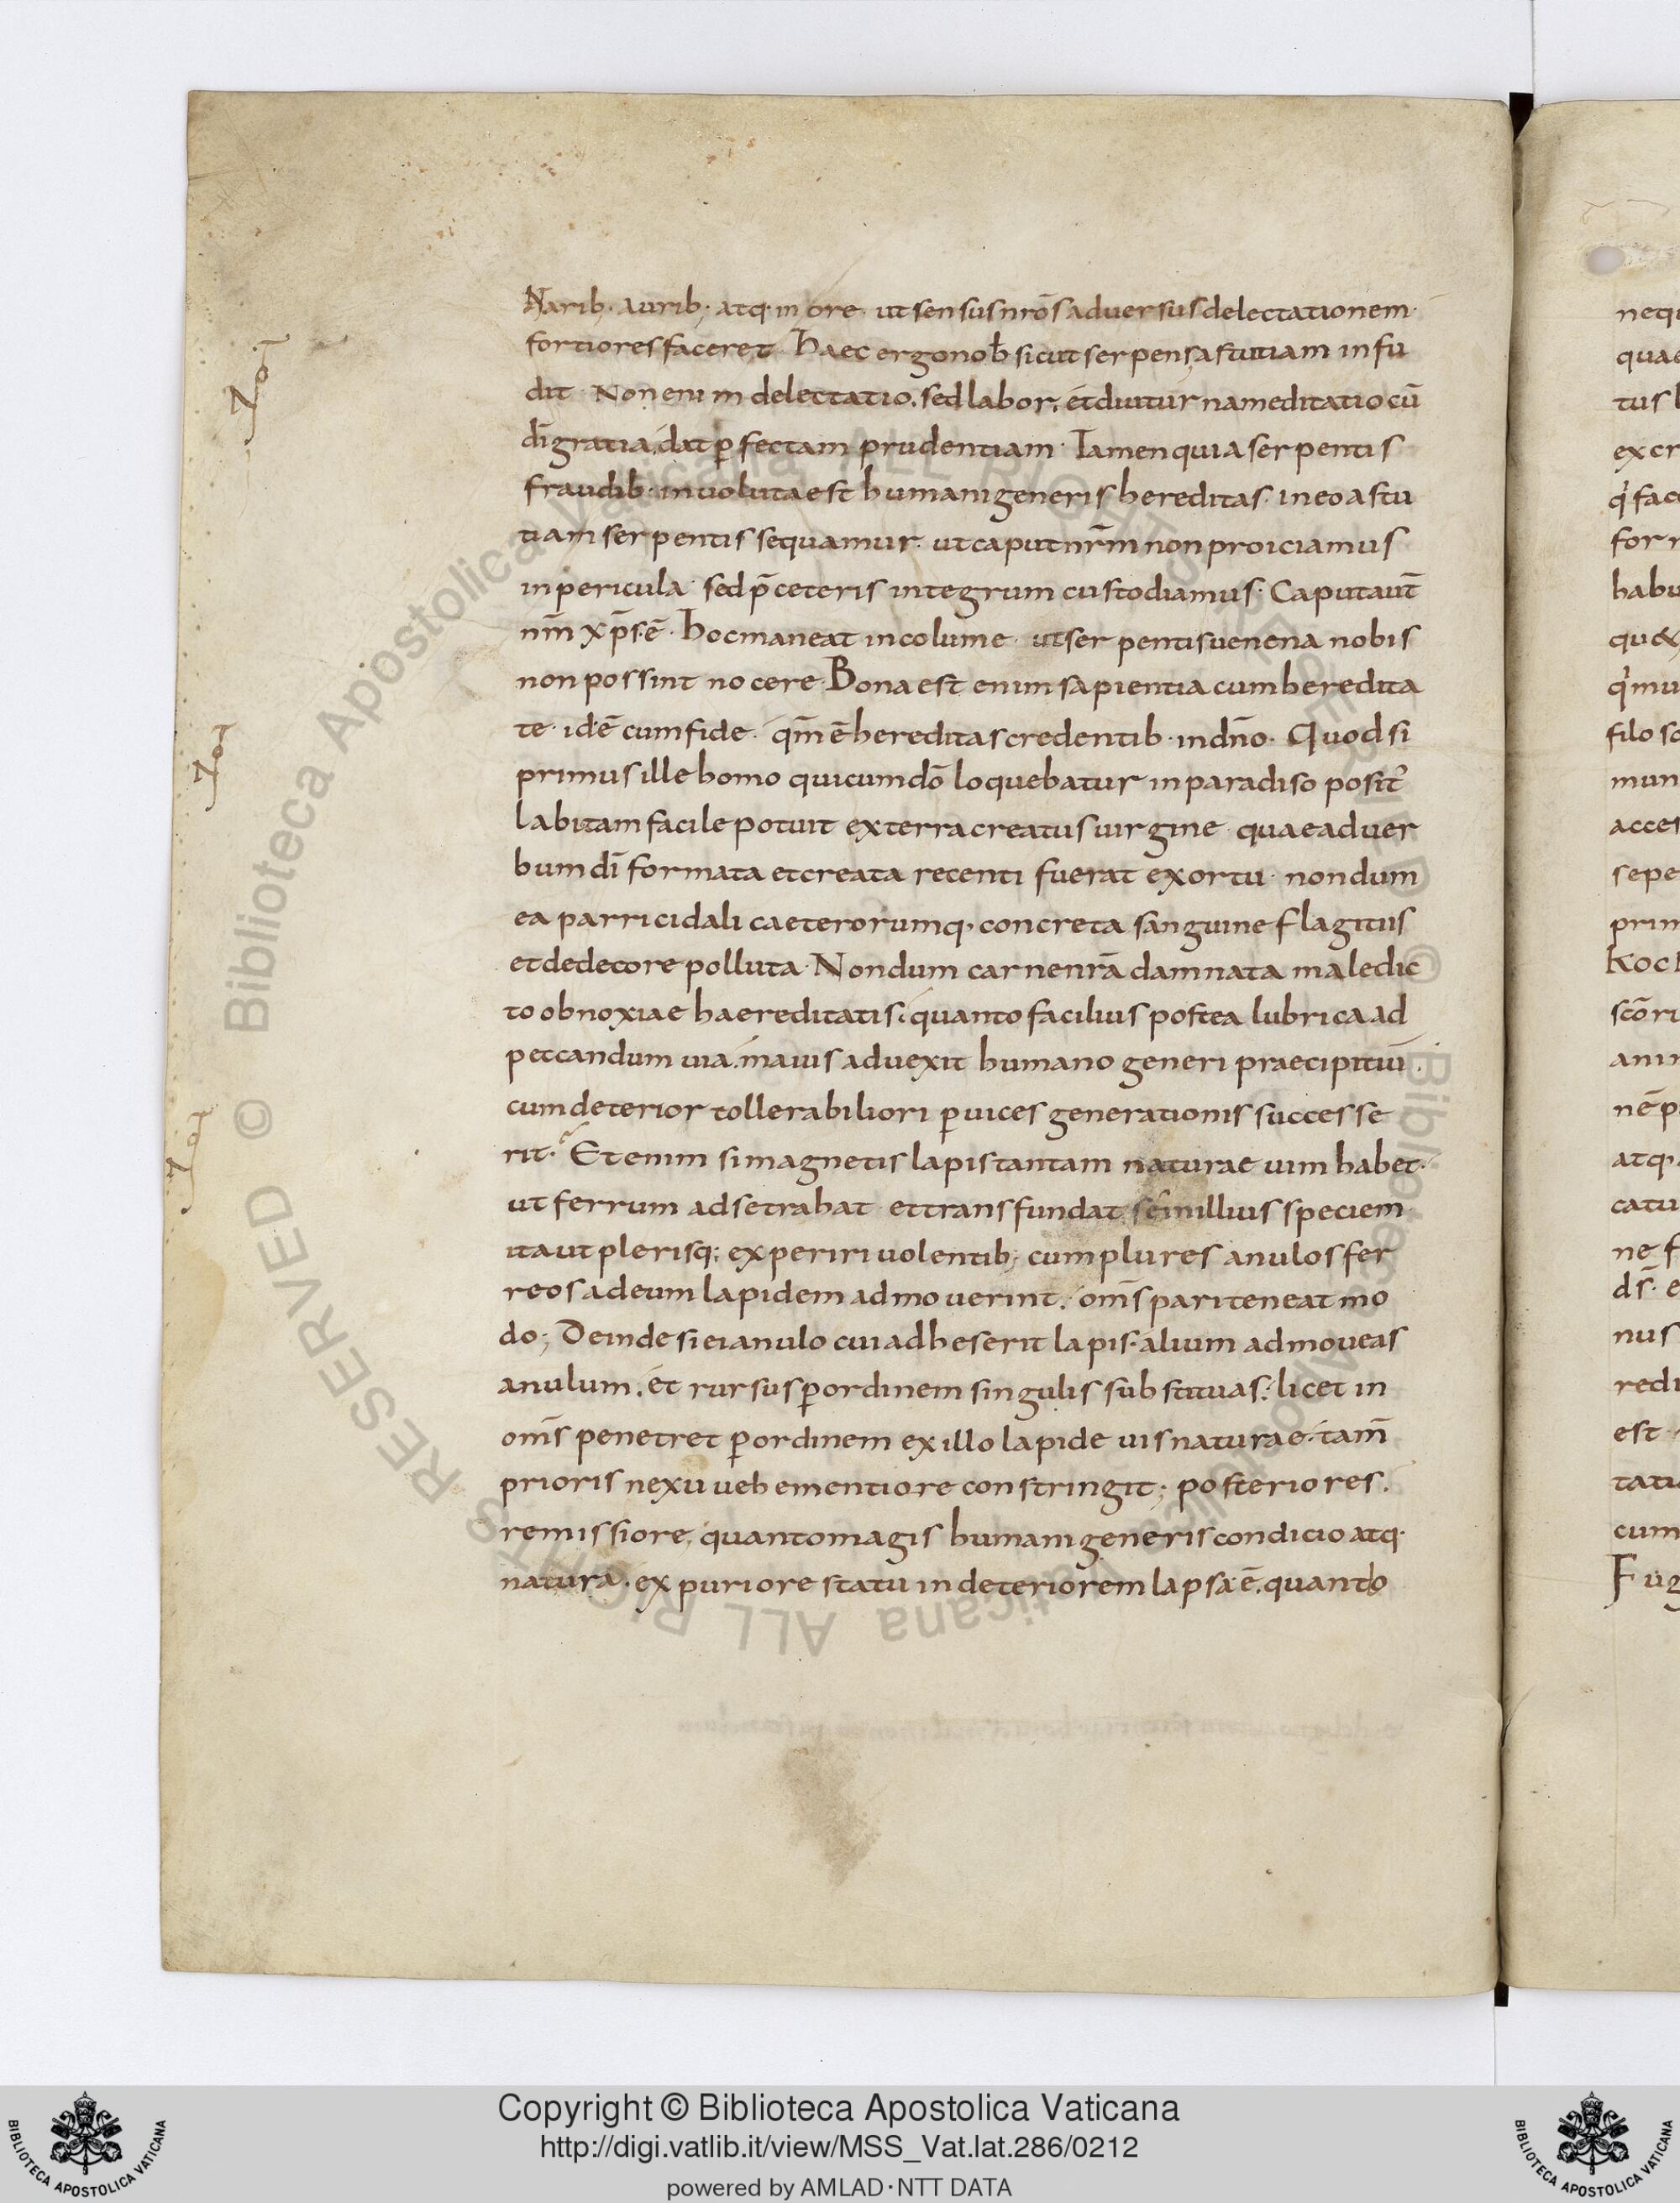 Narib; aurib; atq; in ore · ut sensus nrōs adversus delectationem ·
fortiores faceret · haec ergo nob̄ sicut serpens astutiam infu
dit · Non enim delectatio, sed labor, et diuturna meditatio cū
dī gratia, dat ꝑfectam prudentiam · Tamen quia serpentis
fraudib · involuta est humani generis hereditas · in eo astu
tiam serpentis sequamur · ut caput nr̄m non proiciamus
in pericula · sed p̄ ceteris integrum custodiamus · Caput aut̄
nm̄ xp̄s · ē · hoc maneat incolume · ut serpentis venena nobis
non possint nocere · Bona est enim sapientia cum heredita
te · id · ē cum fide · qm̄ ē hereditas credentib · in dn̄o · Quod si
primus ille homo qui cum dō loquebatur in paradiso positꝰ
labi tam facile potuit ex terra creatus virgine · quae ad ver
bum dī formata et creata recenti fuerat exortu · nondum
ea parricidali caeterorumq; concreta sanguine flagitiis
et dedecore polluta · Nondum carne nrā damnata maledic
to obnoxiae haereditatis; quanto facilius postea lubrica ad
peccandum via · maius advexit humano generi praecipitiū ·
cum deterior tollerabiliori ꝑ vices generationis successe
rit · Etenim si magnetis lapis tantam naturae vim habet ·
ut ferrum ad se trahat · et transfundat se in illius speciem
ita ut plerisq; experiri volentib; cum plures anulos fer
reos ad eum lapidem admoverint · om̄s pari teneat mo
do; Deinde si ei anulo cui adheserit lapis · alium admoveas
anulum · et rursus ꝑ ordinem singulis substituas; licet in
om̄s penetret ꝑ ordinem ex illo lapide vis naturae · tam̄
prioris nexu vehementiore constringit; posteriores ·
remissiore, quanto magis humani generis condicio atq;
natura · ex puriore statu in deteriorem lapsa ē · quanto
neq
qua
tus
ex cr
q fac
for
habu
qu&
q mu
filo so
mun
acces
sepe
prim
hoc
scōri
ani
nē p
atq;
catu
ne f
ds̄ · e
nus
redi
est
tati
cum
Fug
© Biblioteca Apostolica Vaticana ALL RIGHTS RESERVED
© Biblioteca Apostolica Vaticana ALL RIGHTS RESERVED
BIBLIOTECA APOSTOLICA VATICANA
Copyright © Biblioteca Apostolica Vaticana
http://digi.vatlib.it/view/MSS_Vat.lat.286/0212
powered by AMLAD·NTT DATA
BIBLIOTECA APOSTOLICA VATICANA